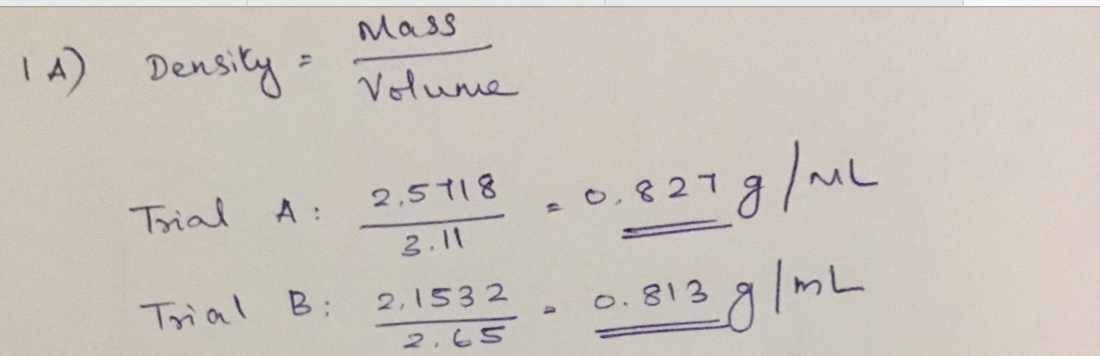 1A) Density = Mass / Volume
Trial A: 2.5718 / 3.11 = 0.827 g/mL
Trial B: 2.1532 / 2.65 = 0.813 g/mL